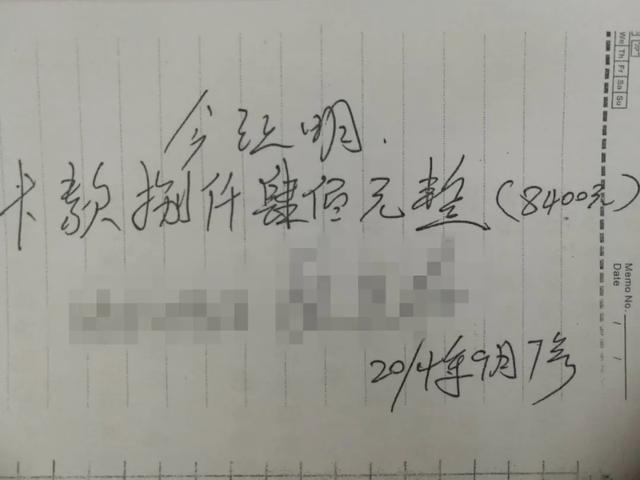 今证明.
卡款捌仟肆佰元整(8400元)
2014年9月7号
We Th Fr Sa Su
Memo No.
Date / /